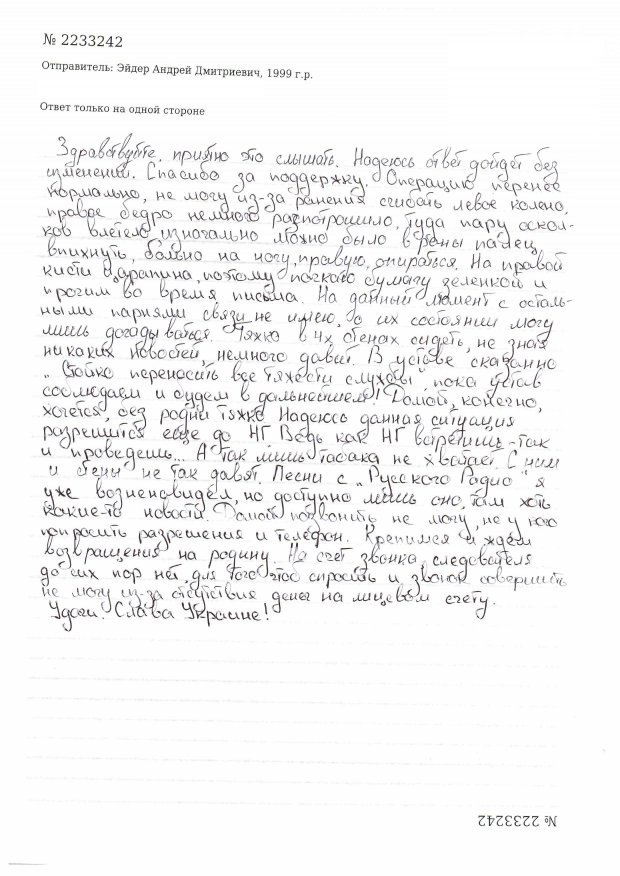 № 2233242
Отправитель: Эйдер Андрей Дмитриевич, 1999 г.р.
Ответ только на одной стороне
Здравствуйте, приятно это слышать. Надеюсь ответ дойдёт без
изменений. Спасибо за поддержку. Операцию перенёс
нормально, не могу из-за ранения сгибать левое колено,
правое бедро немного распотрошило, туда пару оскол-
ков влетело, изначально можно было в раны палец
впихнуть, больно на ногу, правую, опираться. На правой
кисти царапина, поэтому пачкаю бумагу зелёнкой и
прочим во время письма. На данный момент с осталь-
ными парнями связи не имею, о их состоянии могу
лишь догадываться. Тяжко в 4х стенах сидеть, не зная
никаких новостей, немного давит. В уставе сказанно
"Стойко переносить все тяжести службы", пока устав
соблюдаем и будем в дальнейшем! Домой, конечно,
хочется, без родни тяжко Надеюсь данная ситуация
разрешится ещё до НГ Ведь как НГ встретишь - так
и проведёшь... А так лишь табака не хватает. С ним
и стены не так давят. Песни с "Русского Радио" я
уже возненавидел, но доступно лишь оно, там хоть
какие-то новости. Домой позвонить не могу, не у кого
попросить разрешения и телефон. Крепимся и ждём
возвращения на родину. На счёт звонка, следователя
до сих пор нет, для того чтоб спросить и звонок совершить
не могу из-за отсутствия денег на лицевом счету.
Удачи. Слава Украине!
№ 2233242